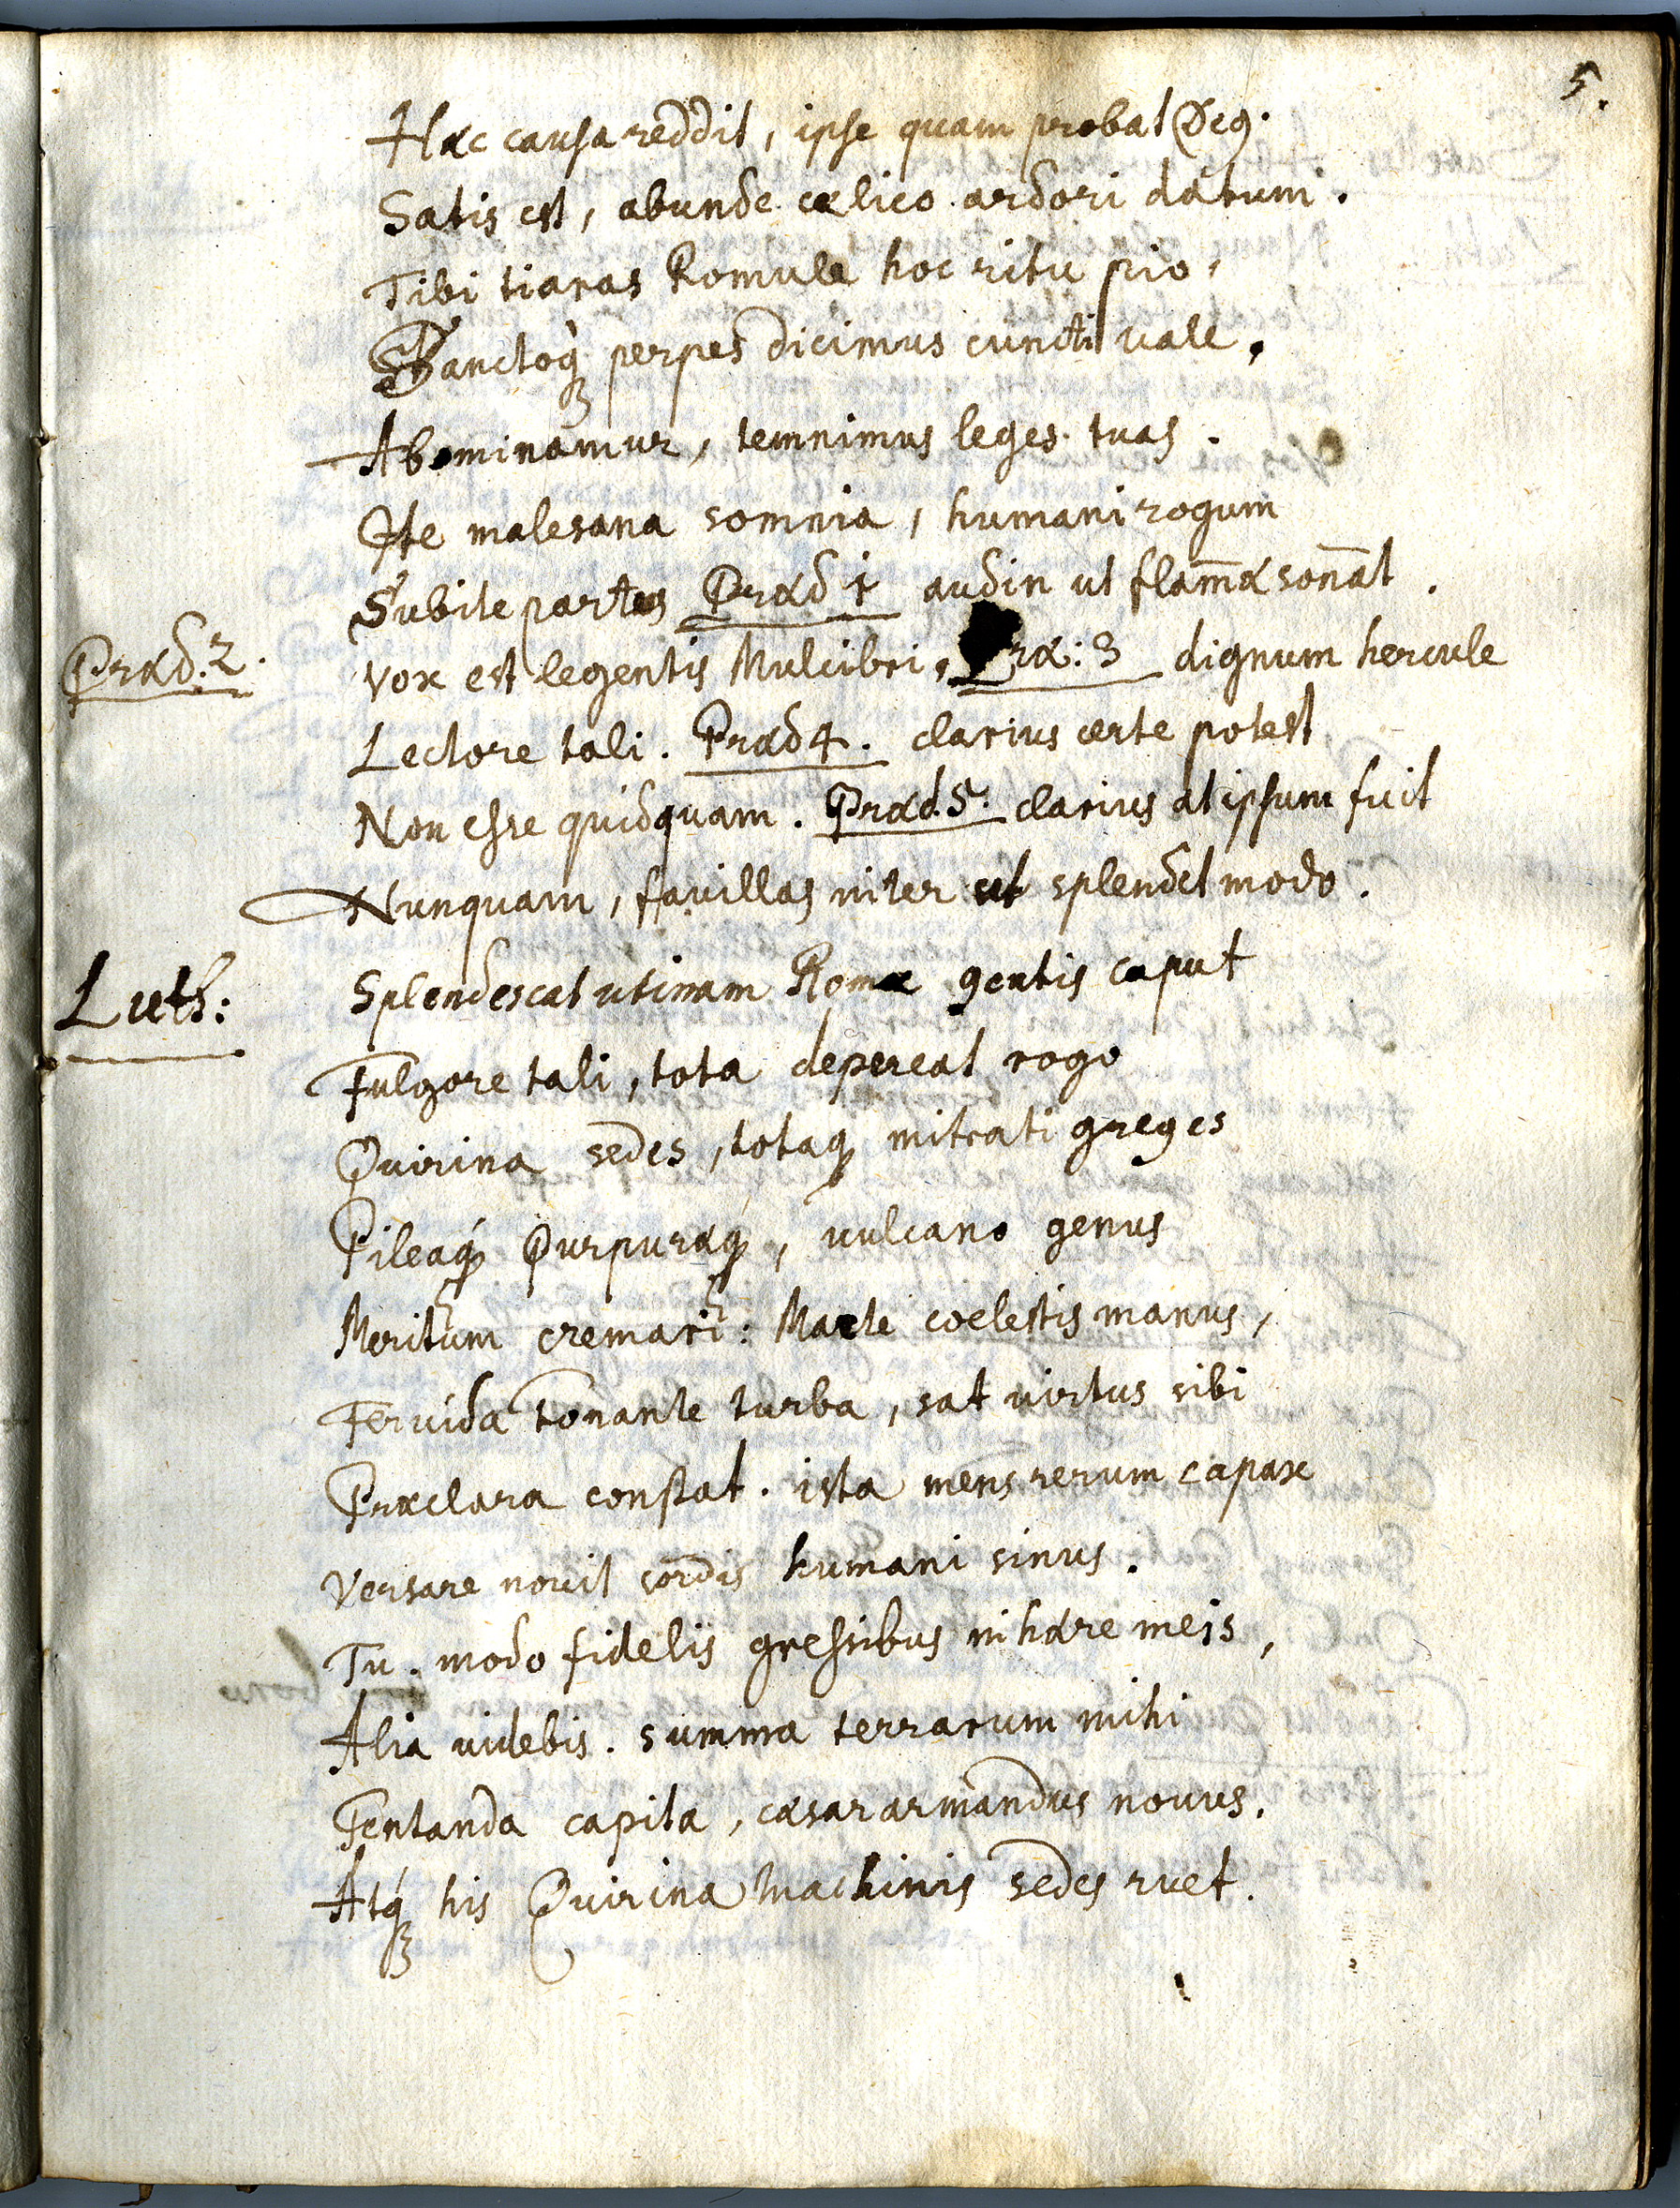 5.
Hæc causa reddit, ipse quam probat Deꝰ.
Satis est, abunde cælico ardori datum.
Tibi tiaras Romule hoc ritu pio,
Sanctoq́ꝫ perpes dicimus cuncti vale.
Abominamur, temnimus leges tuas.
Ite malesana somnia, humani rogum
Subite partes Præd 1 audin ut flam̄æ sonāt.
Præd. 2. Vox est legentis Mulcibri, Præ: 3 dignum hercule
Lectore tali. Præd 4. clarius certe potest
Non esse quidquam. Præd. 5. clarius at ipsum fuit
Nunquam, favillas inter ut splendet modo.
Luth: Splendescat utinam Romæ gentis caput
Fulgore tali, tota depereat rogo
Quirina sedes, totaqꝫ mitrati greges
Pileaq́ꝫ Purpuræq́ꝫ, vulcano genus
Meritum cremari: Macte coelestis manus,
Fervida tonante turba, sat virtus sibi
Præclara constat. ista mens rerum capax
Versare novit cordis humani sinus.
Tu. modo fidelis gressibus inhære meis,
Alia videbis. summa terrarum mihi
Tentanda capita, cæsar armandus novus.
Atq́ꝫ his Quirina machinis sedes ruet.